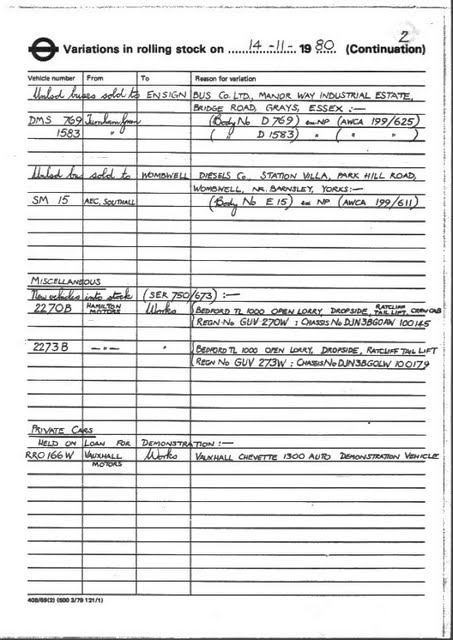 2
Variations in rolling stock on 14-11-1980 (Continuation)
Vehicle number From To Reason for variation
Unlsd buses sold to ENSIGN BUS CO. LTD., MANOR WAY INDUSTRIAL ESTATE,
BRIDGE ROAD, GRAYS, ESSEX :—
DMS 769 Turnham Green (Body No D 769) ex NP (AWCA 199/625)
1583 " ( " D 1583) " ( " )
Unlsd bus sold to WOMBWELL DIESELS CO., STATION VILLA, PARK HILL ROAD,
WOMBWELL, NR. BARNSLEY, YORKS :—
SM 15 AEC, SOUTHALL (Body No E 15) ex NP (AWCA 199/611)
MISCELLANEOUS
New vehicles into stock (SER 750/673) :—
2270B HAMILTON MOTORS Works BEDFORD TL 1000 OPEN LORRY, DROPSIDE, RATCLIFF TAIL LIFT, CREW CAB
REGN No GUV 270W : CHASSIS No DJN3BG0AW 100145
2273B —"— " BEDFORD TL 1000 OPEN LORRY, DROPSIDE, RATCLIFF TAIL LIFT
REGN No GUV 273W : CHASSIS No DJN3BG0LW 100179
PRIVATE CARS
HELD ON LOAN FOR DEMONSTRATION :—
RRO 166W VAUXHALL MOTORS Works VAUXHALL CHEVETTE 1300 AUTO DEMONSTRATION VEHICLE